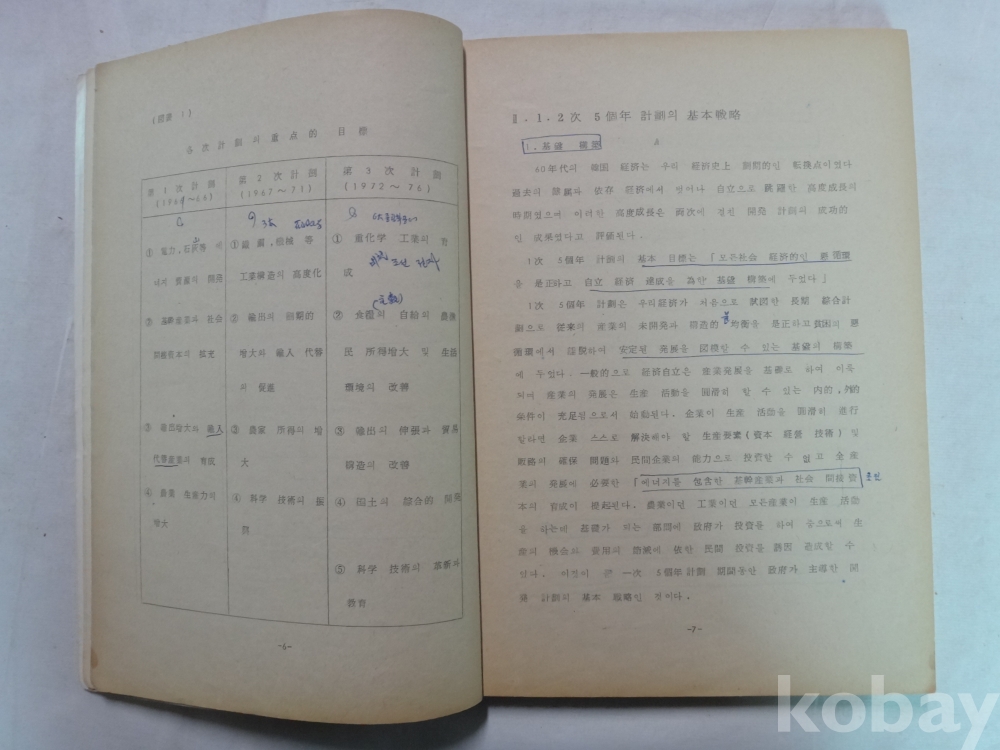 (図表 1)
各次計劃의 重点的 目標
第1次計劃 第2次計劃 第3次計劃
(1967~71) (1972~76)
① 電力, 石炭等 에
① 鉄鋼, 機械 等
工業構造의 高度化
① 重化学 工業의 育
成
② 基幹産業과 社会
間接資本의 拡充
② 輸出의 画期的
増大와 輸入 代替
의 促進
② 食糧의 自給과 農漁
民 所得增大 및 生活
環境의 改善
③ 輸出増大와 輸入
代替産業의 育成
③ 農家 所得의 増
大
③ 輸出의 伸張과 貿易
構造의 改善
④ 農業 生産力의
増大
④ 科学 技術의 振
④ 国土의 綜合的 開発
⑤ 科学 技術의 革新과
教育
-6-
Ⅱ. 1.2次 5個年 計劃의 基本戦略
1. 基礎 構築
60年代의 韓国 経済는 우리 経済史上 劃期的인 転換点이었다
過去의 隷属과 依存 経済에서 벗어나 自立으로 跳躍한 高度成長의
時期였으며 이러한 高度成長은 両次에 걸친 開発 計劃의 成功的
인 成果였다고 評価된다.
1次 5個年 計劃의 基本 目標는 「모든社会 経済的인 悪循環
을 是正하고 自立 経済 達成을 為한 基礎 構築에 두었다」
1次 5個年 計劃은 우리経済가 처음으로 試図한 長期 綜合計
劃으로 従来의 産業의 未開発과 構造的 不均衡을 是正하고 貧困의 悪
循環에서 脱脚하여 安定된 発展을 図模할 수 있는 基礎의 構築
에 두었다. 一般的으로 経済自立은 産業発展을 基礎로 하여 이룩
되며 産業의 発展은 生産 活動을 円滑히 할 수 있는 内的, 外的
条件이 充足됨으로서 始動된다. 企業이 生産 活動을 円滑히 進行
할라면 企業 스스로 解決해야 할 生産要素(資本 経営 技術) 및
販路의 確保 問題와 民間企業의 能力으로 投資할 수 없고 全産
業의 発展에 必要한 「에너지를 包含한 基幹産業과 社会 間接資
本의 育成이 提起된다. 農業이던 工業이던 모든産業이 生産 活動
을 하는데 基礎가 되는 部門에 政府가 投資를 하여 줌으로써 生
産의 機会와 費用의 節減에 依한 民間 投資를 誘因 造成할 수
있다. 이것이 第 一次 5個年 計劃 期間동안 政府가 主導한 開
発 計劃의 基本 戦略인 것이다.
-7-
kobay